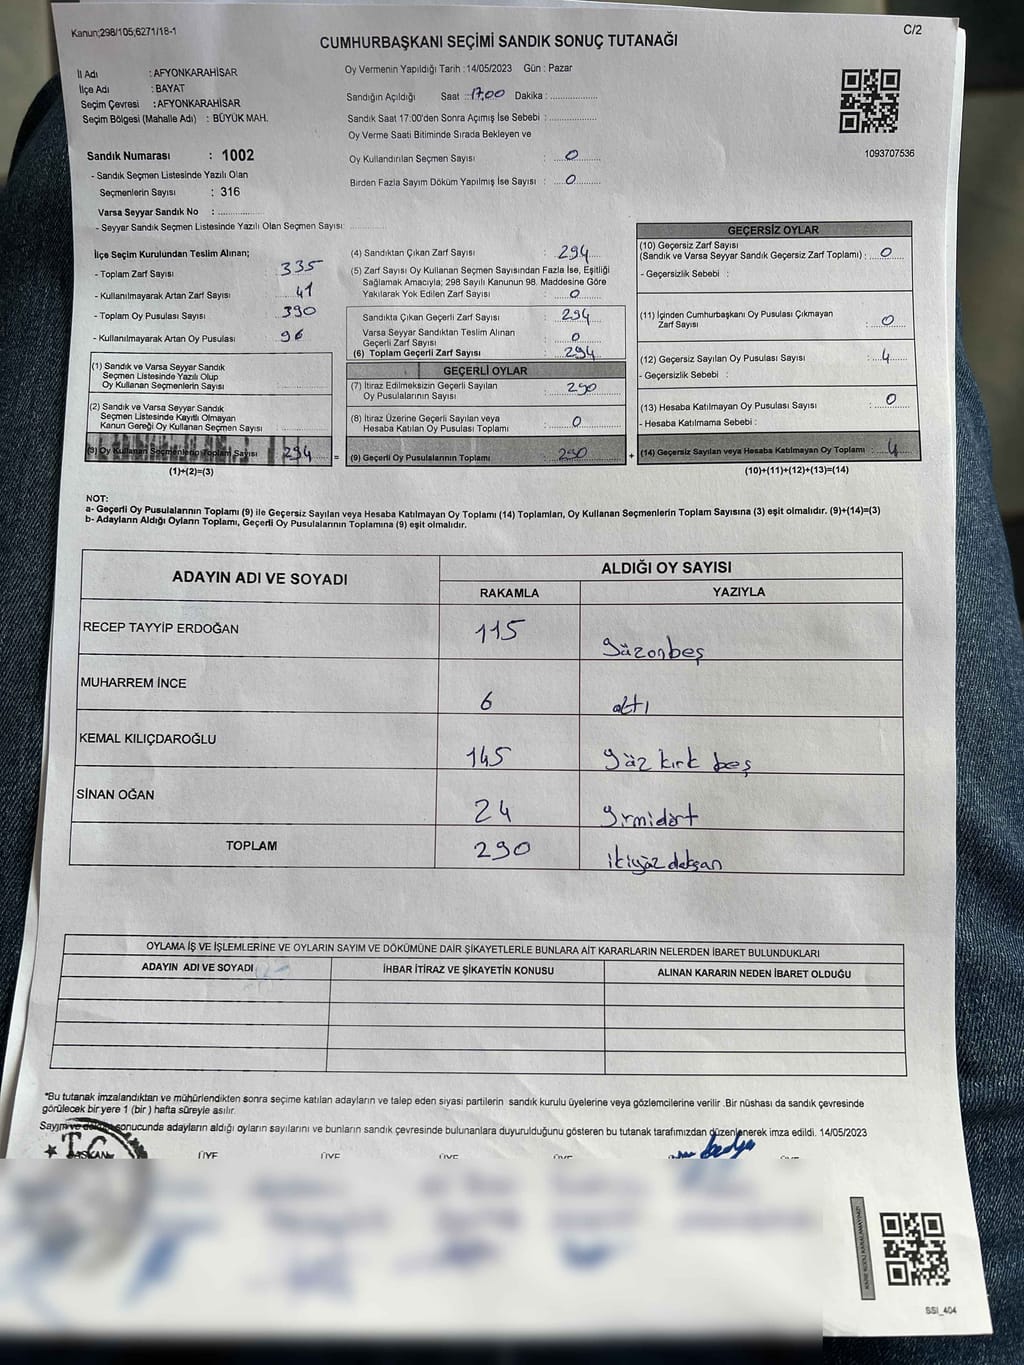 Kanun;298/105;6271/18-1
C/2
CUMHURBAŞKANI SEÇİMİ SANDIK SONUÇ TUTANAĞI
İl Adı : AFYONKARAHİSAR
İlçe Adı : BAYAT
Seçim Çevresi : AFYONKARAHİSAR
Seçim Bölgesi (Mahalle Adı) : BÜYÜK MAH.
Sandık Numarası : 1002
- Sandık Seçmen Listesinde Yazılı Olan
Seçmenlerin Sayısı : 316
Varsa Seyyar Sandık No : ..................
- Seyyar Sandık Seçmen Listesinde Yazılı Olan Seçmen Sayısı:
Oy Vermenin Yapıldığı Tarih : 14/05/2023 Gün : Pazar
Sandığın Açıldığı Saat : 17,00 Dakika : ..................
Sandık Saat 17:00'den Sonra Açımış İse Sebebi : ..................
Oy Verme Saati Bitiminde Sırada Bekleyen ve
Oy Kullandırılan Seçmen Sayısı : 0
Birden Fazla Sayım Döküm Yapılmış İse Sayısı : 0
1093707536
İlçe Seçim Kurulundan Teslim Alınan;
- Toplam Zarf Sayısı : 335
- Kullanılmayarak Artan Zarf Sayısı : 41
- Toplam Oy Pusulası Sayısı : 390
- Kullanılmayarak Artan Oy Pusulası : 96
(1) Sandık ve Varsa Seyyar Sandık
Seçmen Listesinde Yazılı Olup
Oy Kullanan Seçmenlerin Sayısı :
(2) Sandık ve Varsa Seyyar Sandık
Seçmen Listesinde Kayıtlı Olmayan
Kanun Gereği Oy Kullanan Seçmen Sayısı :
(3) Oy Kullanan Seçmenlerin Toplam Sayısı : 294 =
(1)+(2)=(3)
(4) Sandıktan Çıkan Zarf Sayısı : 294
(5) Zarf Sayısı Oy Kullanan Seçmen Sayısından Fazla İse, Eşitliği
Sağlamak Amacıyla; 298 Sayılı Kanunun 98. Maddesine Göre
Yakılarak Yok Edilen Zarf Sayısı : 0
Sandıkta Çıkan Geçerli Zarf Sayısı : 294
Varsa Seyyar Sandıktan Teslim Alınan
Geçerli Zarf Sayısı : 0
(6) Toplam Geçerli Zarf Sayısı : 294
GEÇERLİ OYLAR
(7) İtiraz Edilmeksizin Geçerli Sayılan
Oy Pusulalarının Sayısı : 290
(8) İtiraz Üzerine Geçerli Sayılan veya
Hesaba Katılan Oy Pusulası Toplamı : 0
(9) Geçerli Oy Pusulalarının Toplamı : 290 +
GEÇERSİZ OYLAR
(10) Geçersiz Zarf Sayısı
(Sandık ve Varsa Seyyar Sandık Geçersiz Zarf Toplamı) : 0
- Geçersizlik Sebebi :
(11) İçinden Cumhurbaşkanı Oy Pusulası Çıkmayan
Zarf Sayısı : 0
(12) Geçersiz Sayılan Oy Pusulası Sayısı : 4
- Geçersizlik Sebebi :
(13) Hesaba Katılmayan Oy Pusulası Sayısı : 0
- Hesaba Katılmama Sebebi :
(14) Geçersiz Sayılan veya Hesaba Katılmayan Oy Toplamı : 4
(10)+(11)+(12)+(13)=(14)
NOT:
a- Geçerli Oy Pusulalarının Toplamı (9) ile Geçersiz Sayılan veya Hesaba Katılmayan Oy Toplamı (14) Toplamları, Oy Kullanan Seçmenlerin Toplam Sayısına (3) eşit olmalıdır. (9)+(14)=(3)
b- Adayların Aldığı Oyların Toplamı, Geçerli Oy Pusulalarının Toplamına (9) eşit olmalıdır.
ADAYIN ADI VE SOYADI
ALDIĞI OY SAYISI
RAKAMLA YAZIYLA
RECEP TAYYİP ERDOĞAN 115 yüzonbeş
MUHARREM İNCE 6 altı
KEMAL KILIÇDAROĞLU 145 yüz kırk beş
SİNAN OĞAN 24 yirmidört
TOPLAM 290 ikiyüzdoksan
OYLAMA İŞ VE İŞLEMLERİNE VE OYLARIN SAYIM VE DÖKÜMÜNE DAİR ŞİKAYETLERLE BUNLARA AİT KARARLARIN NELERDEN İBARET BULUNDUKLARI
ADAYIN ADI VE SOYADI İHBAR İTİRAZ VE ŞİKAYETİN KONUSU ALINAN KARARIN NEDEN İBARET OLDUĞU
*Bu tutanak imzalandıktan ve mühürlendikten sonra seçime katılan adayların ve talep eden siyasi partilerin sandık kurulu üyelerine veya gözlemcilerine verilir .Bir nüshası da sandık çevresinde
görülecek bir yere 1 (bir ) hafta süreyle asılır.
Sayım ve döküm sonucunda adayların aldığı oyların sayılarını ve bunların sandık çevresinde bulunanlara duyurulduğunu gösteren bu tutanak tarafımızdan düzenlenerek imza edildi. 14/05/2023
T.C.
BAŞKAN ÜYE ÜYE ÜYE ÜYE
SSI_404